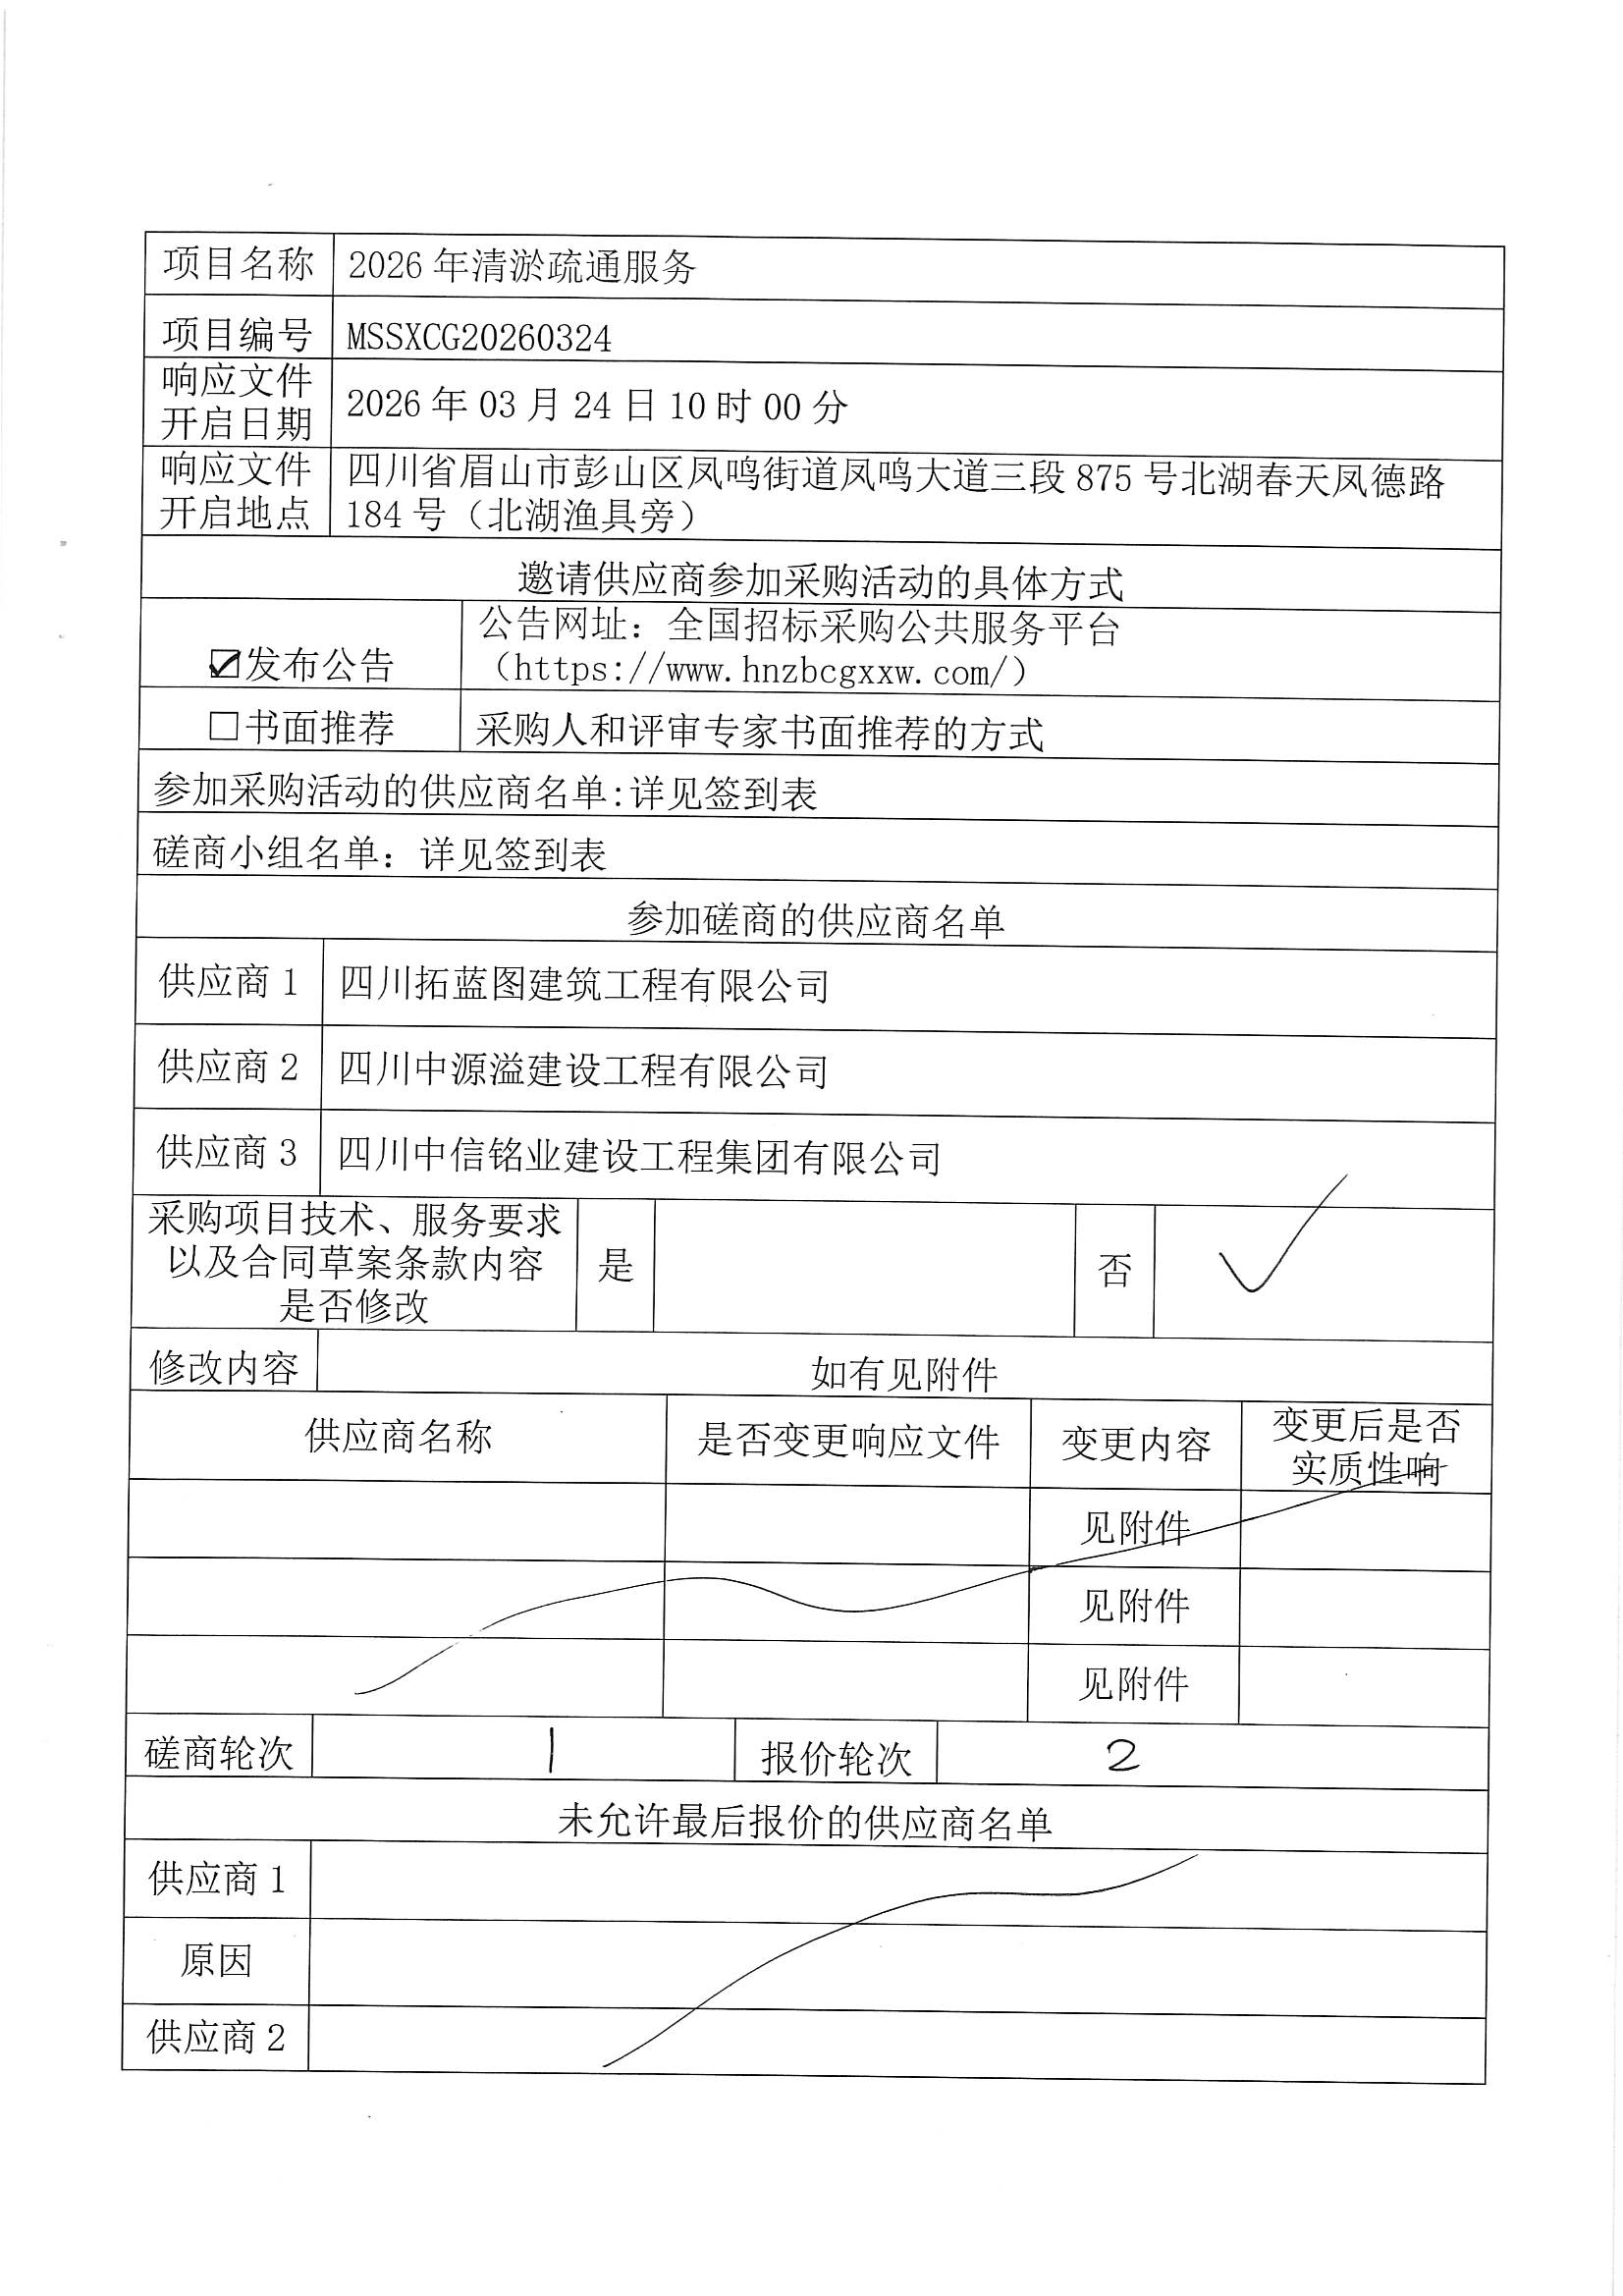 项目名称 2026年清淤疏通服务
项目编号 MSSXCG20260324
响应文件
开启日期 2026年03月24日10时00分
响应文件 四川省眉山市彭山区凤鸣街道凤鸣大道三段875号北湖春天凤德路
开启地点 184号（北湖渔具旁）
邀请供应商参加采购活动的具体方式
公告网址：全国招标采购公共服务平台
☑发布公告 （https://www.hnzbcgxxw.com/）
□书面推荐 采购人和评审专家书面推荐的方式
参加采购活动的供应商名单:详见签到表
磋商小组名单：详见签到表
参加磋商的供应商名单
供应商1 四川拓蓝图建筑工程有限公司
供应商2 四川中源溢建设工程有限公司
供应商3 四川中信铭业建设工程集团有限公司
采购项目技术、服务要求
以及合同草案条款内容 是 否 ✓
是否修改
修改内容 如有见附件
供应商名称 是否变更响应文件 变更内容 变更后是否
实质性响
见附件
见附件
见附件
磋商轮次 1 报价轮次 2
未允许最后报价的供应商名单
供应商1
原因
供应商2